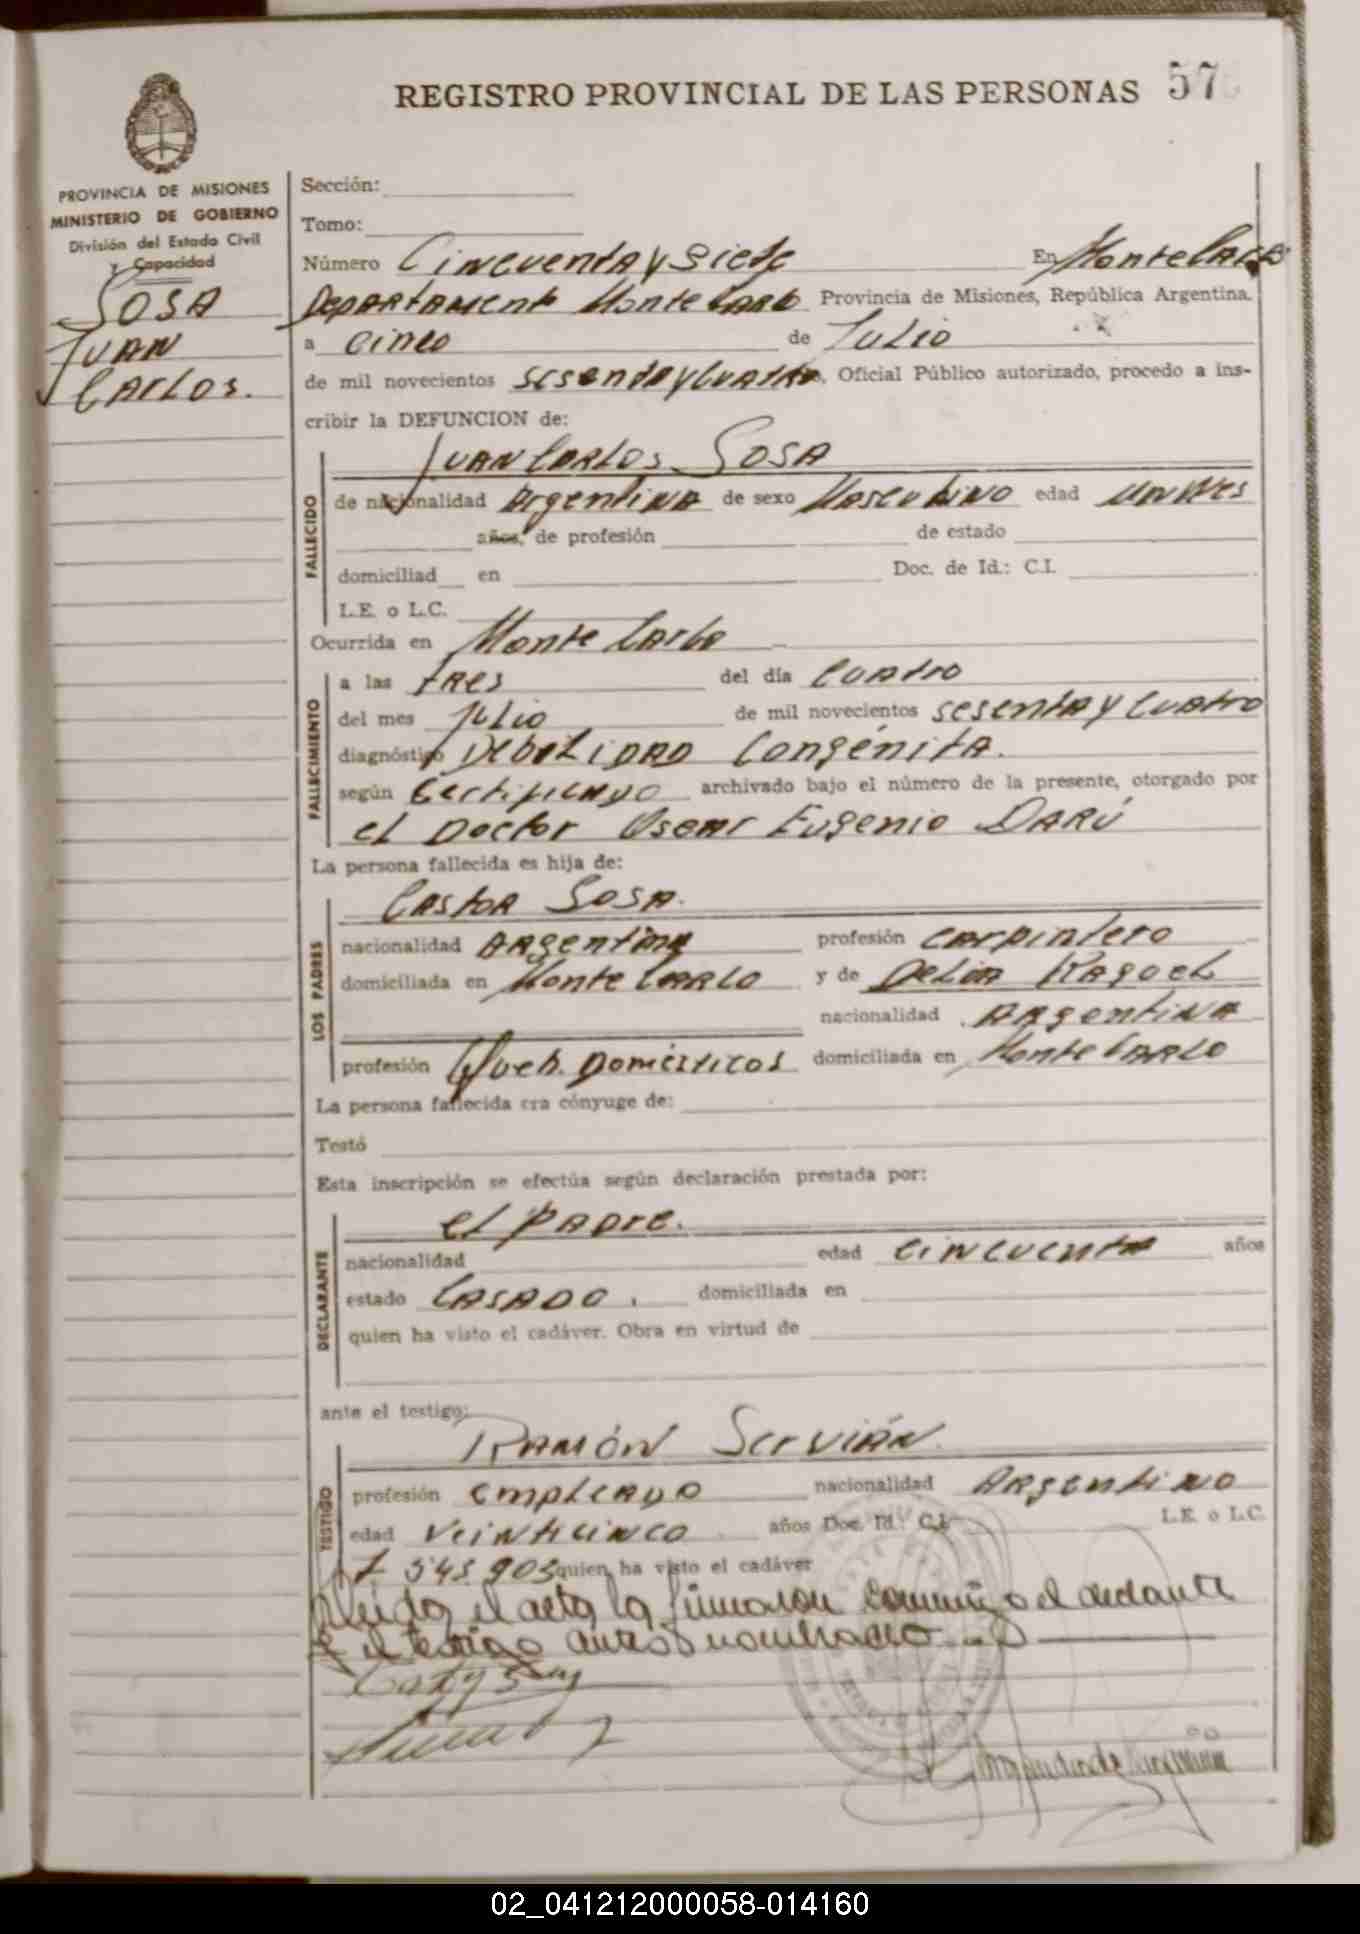 REGISTRO PROVINCIAL DE LAS PERSONAS 57
PROVINCIA DE MISIONES
MINISTERIO DE GOBIERNO
División del Estado Civil
y Capacidad
SOSA
JUAN
CARLOS.
Sección:
Tomo:
Número Cincuenta y siete En Monte Carlo
Departamento Monte Carlo Provincia de Misiones, República Argentina,
a cinco de Julio
de mil novecientos sesenta y cuatro, Oficial Público autorizado, procedo a ins-
cribir la DEFUNCION de:
FALLECIDO
Juan Carlos Sosa
de nacionalidad Argentina de sexo Masculino edad un mes
años, de profesión de estado
domiciliad en Doc. de Id.: C.I.
L.E. o L.C.
Ocurrida en Monte Carlo
FALLECIMIENTO
a las tres del día cuatro
del mes Julio de mil novecientos sesenta y cuatro
diagnóstico Debilidad Congénita.
según Certificado archivado bajo el número de la presente, otorgado por
el Doctor Oscar Eugenio Darú
La persona fallecida es hija de:
LOS PADRES
Castor Sosa.
nacionalidad Argentina profesión carpintero
domiciliada en Monte Carlo y de Delia Raquel
nacionalidad Argentina
profesión Queh. Domésticos domiciliada en Monte Carlo
La persona fallecida era cónyuge de:
Testó
Esta inscripción se efectúa según declaración prestada por:
DECLARANTE
el padre.
nacionalidad edad cincuenta años
estado Casado. domiciliada en
quien ha visto el cadáver. Obra en virtud de
ante el testigo:
TESTIGO
Ramón Servián
profesión empleado nacionalidad Argentino
edad veinticinco años Doc. Id.: C.I. L.E. o L.C.
7.543.903 quien ha visto el cadáver
Leida el acta la firmaron conmigo el declarante
y el testigo antes nombrado
02_041212000058-014160